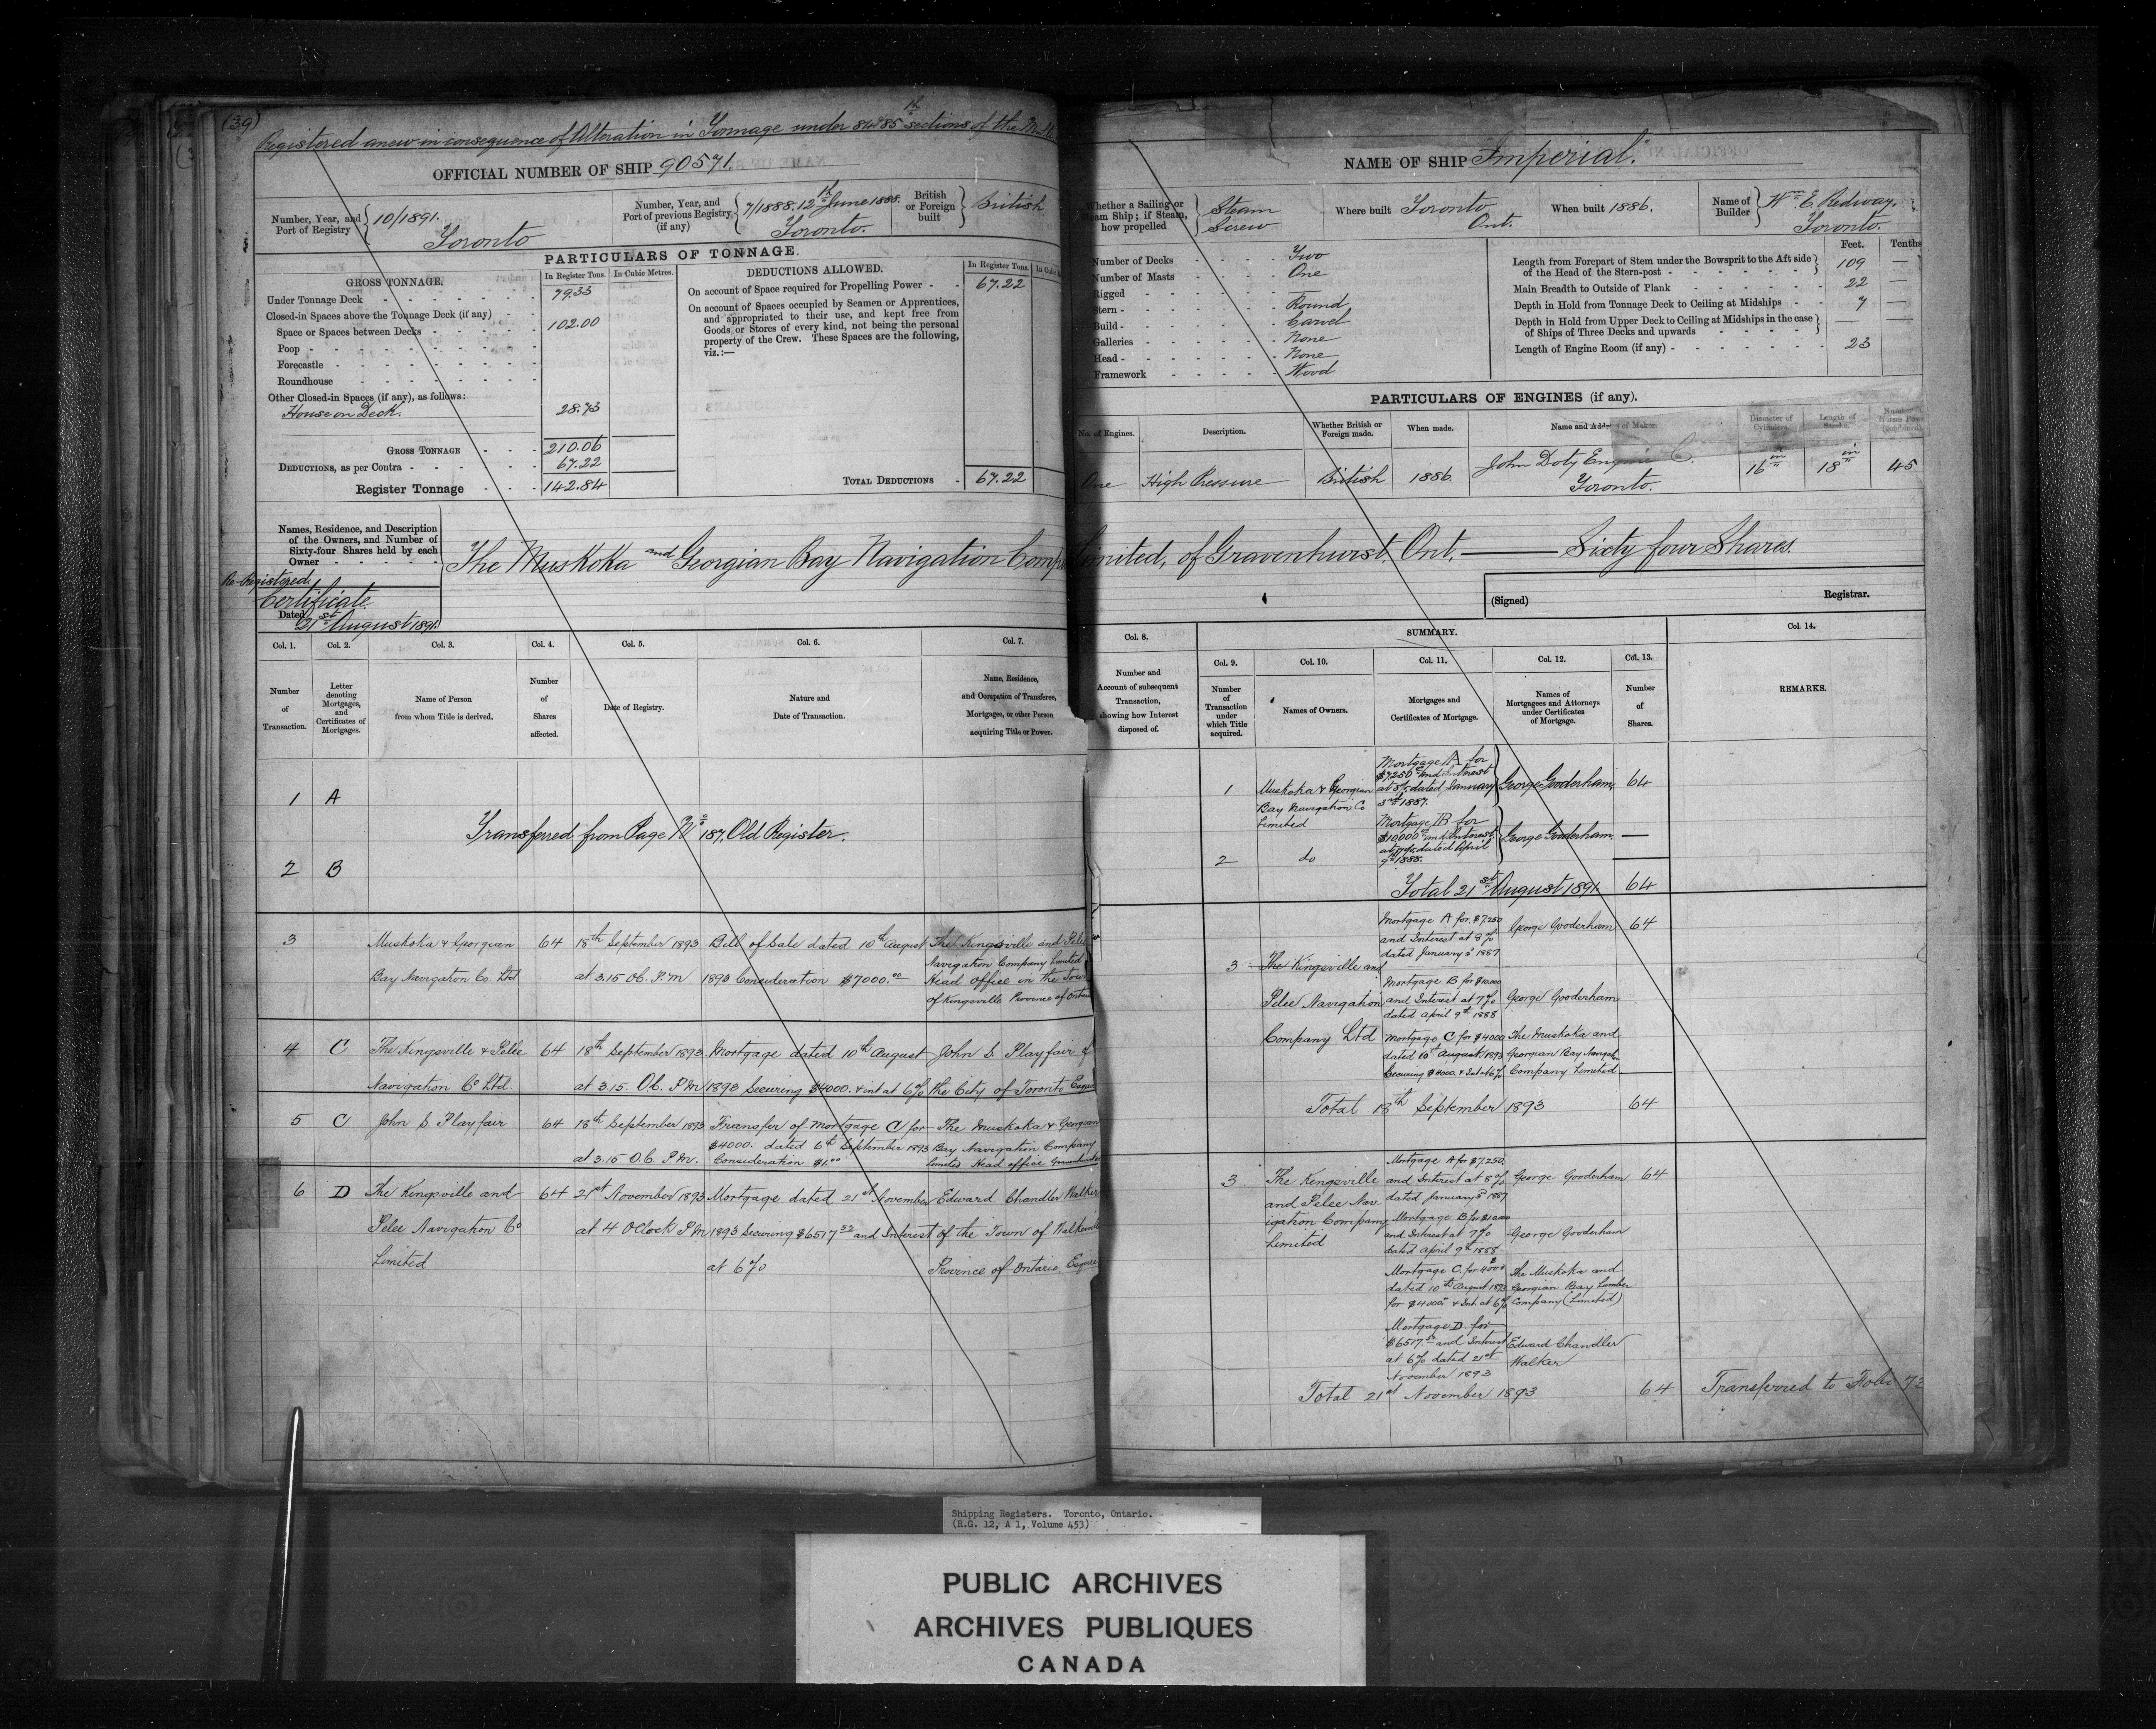 (39)
Registered anew in consequence of Alteration in Tonnage under 84 & 85th sections of the
OFFICIAL NUMBER OF SHIP 90571.
Number, Year, and Port of Registry 10/1891. Toronto
Number, Year, and Port of previous Registry, (if any) 7/1888. 12th June 1888. Toronto.
British or Foreign built British
PARTICULARS OF TONNAGE.
GROSS TONNAGE. In Register Tons. In Cubic Metres.
Under Tonnage Deck 79.33
Closed-in Spaces above the Tonnage Deck (if any)
Space or Spaces between Decks 102.00
Poop
Forecastle
Roundhouse
Other Closed-in Spaces (if any), as follows:
House on Deck. 28.73
GROSS TONNAGE 210.06
DEDUCTIONS, as per Contra 67.22
Register Tonnage 142.84
DEDUCTIONS ALLOWED. In Register Tons.
On account of Space required for Propelling Power 67.22
On account of Spaces occupied by Seamen or Apprentices,
and appropriated to their use, and kept free from
Goods or Stores of every kind, not being the personal
property of the Crew. These Spaces are the following,
viz.:—
TOTAL DEDUCTIONS 67.22
Names, Residence, and Description
of the Owners, and Number of
Sixty-four Shares held by each
Owner
The Muskoka and Georgian Bay Navigation Comp
Re-Registered.
Certificate
Dated 21st August 1891.
Col. 1. Col. 2. Col. 3. Col. 4. Col. 5. Col. 6. Col. 7.
Number of Transaction.
Letter denoting Mortgages, and Certificates of Mortgages.
Name of Person from whom Title is derived.
Number of Shares affected.
Date of Registry.
Nature and Date of Transaction.
Name, Residence, and Occupation of Transferee, Mortgagee, or other Person acquiring Title or Power.
1 A
Transferred from Page No 187, Old Register.
2 B
3 Muskoka & Georgian 64 18th September 1893 Bill of Sale dated 10th August The Kingsville and Pelee
Bay Navigation Co. Ltd at 3.15 Ob. P.M 1893 Consideration $7000.00 Navigation Company Limited
Head office in the Town
of Kingsville Province of Ontario
4 C The Kingsville & Pelee 64 18th September 1893 Mortgage dated 10th August John S Playfair of
Navigation Co Ltd. at 3.15. Ob. P.M 1893 Securing $4000. & int at 6% the City of Toronto Esquire
5 C John S. Playfair 64 18th September 1893 Transfer of Mortgage C for The Muskoka & Georgian
$4000. dated 6th September 1893 Bay Navigation Company
at 3.15 O.C. P.M. Consideration $1.00 Limited Head office Gravenhurst
6 D The Kingsville and 64 21st November 1893 Mortgage dated 21st November Edward Chandler Walker
Pelee Navigation Co at 4 OClock P.M 1893 Securing $6517.52 and Interest of the Town of Walkerville
Limited at 6% Province of Ontario, Esquire
NAME OF SHIP Imperial.
Whether a Sailing or Steam Ship; if Steam, how propelled Steam Screw
Where built Toronto Ont.
When built 1886.
Name of Builder Wm. E. Redway. Toronto.
Number of Decks Two
Number of Masts One
Rigged —
Stern Round
Build Carvel
Galleries None
Head None
Framework Wood
Feet. Tenths
Length from Forepart of Stem under the Bowsprit to the Aft side
of the Head of the Stern-post 109 —
Main Breadth to Outside of Plank 22 —
Depth in Hold from Tonnage Deck to Ceiling at Midships 7 —
Depth in Hold from Upper Deck to Ceiling at Midships in the case
of Ships of Three Decks and upwards — —
Length of Engine Room (if any) 23
PARTICULARS OF ENGINES (if any).
No. of Engines. Description. Whether British or Foreign made. When made. Name and Address of Maker. Diameter of Cylinders. Length of Stroke.
One High Pressure British 1886. John Doty Engine C. Toronto. 16 in 18 in 45
Limited, of Gravenhurst, Ont, — Sixty four Shares.
(Signed) Registrar.
Col. 8. SUMMARY. Col. 14.
Col. 9. Col. 10. Col. 11. Col. 12. Col. 13.
Number and Account of subsequent Transaction, showing how Interest disposed of.
Number of Transaction under which Title acquired.
Names of Owners.
Mortgages and Certificates of Mortgage.
Names of Mortgagees and Attorneys under Certificates of Mortgage.
Number of Shares.
REMARKS.
1 Muskoka & Georgian Bay Navigation Co Limited
Mortgage A for $7250 and Interest at 8% dated January 3rd 1887.
George Gooderham, 64
2 do
Mortgage B for $10000 and Interest at 7% dated April 9th 1888.
George Gooderham. —
Total 21st August 1891. 64
3 The Kingsville and Pelee Navigation Company Ltd
Mortgage A for $7,250 and Interest at 8% dated January 3 1887
George Gooderham 64
Mortgage B for $10000 and Interest at 7% dated April 9th 1888
George Gooderham
Mortgage C for $4000 dated 10th August 1893 Securing $4000. & Int at 6%
The Muskoka and Georgian Bay Navgtn Company Limited
Total 18th September 1893 64
3 The Kingsville and Pelee Navigation Company Limited
Mortgage A for $7,250. and Interest at 8% dated January 3rd 1887
George Gooderham 64
Mortgage B for $10000 and Interest at 7% dated April 9th 1888
George Gooderham
Mortgage C. for 4000 dated 10th August 1893 for $4000 & Int. at 6%
The Muskoka and Georgian Bay Lumber Company (Limited)
Mortgage D. for $6517.52 and Interest at 6% dated 21st November 1893
Edward Chandler Walker
Total 21st November 1893 64 Transferred to Folio 73
Shipping Registers. Toronto, Ontario.
(R.G. 12, A 1, Volume 453)
PUBLIC ARCHIVES
ARCHIVES PUBLIQUES
CANADA